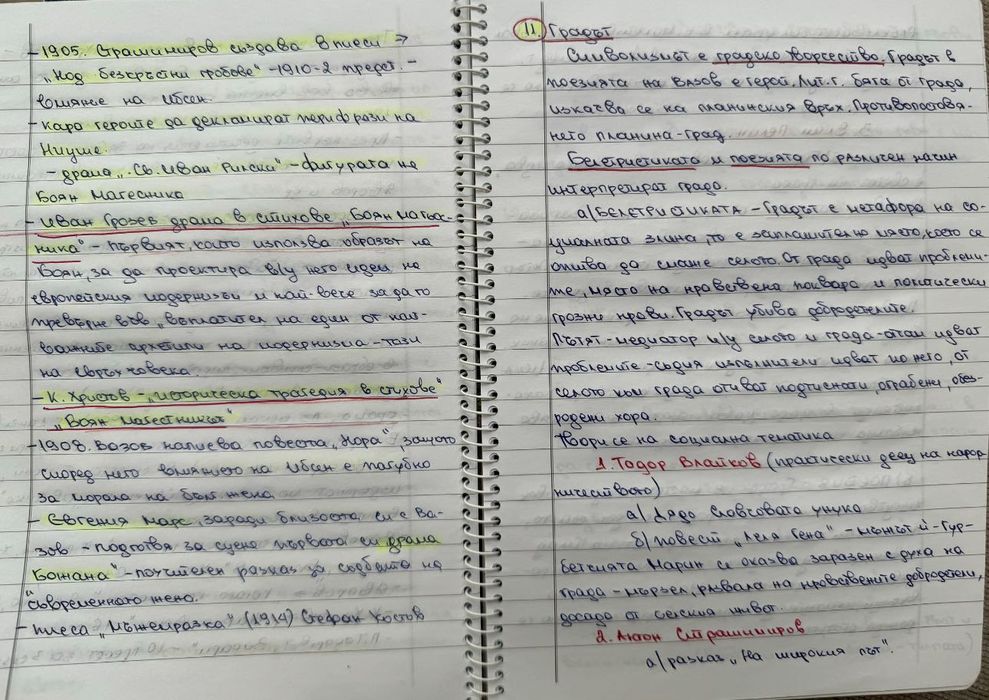 - 1905. Страшимиров създава 8 пиеси →
"Над безкръстни гробове" - 1910 - 2 предст. -
влияние на Ибсен.
- кара героите да декламират перифрази на
Ницше.
- драма "Св. Иван Рилски" - фигурата на
Боян Магесника
- Иван Грозев драма в стихове "Боян магьос-
ника" - първият, който използва образът на
Боян, за да проектира в/у него идеи на
европейския модернизъм и най-вече за да го
превърне във "въплатител на един от най-
важните архетипи на модернизма - този
на свръхчовека
- К. Христов - "историческа трагедия в стихове"
"Боян магесникът"
- 1908. Вазов написва повестта "Нора", защото
според него влиянието на Ибсен е пагубно
за морала на бълг. жена
- Евгения Марс, заради близостта си с Ва-
зов - подготвя за сцена първата си драма
"Божана" - почителен разказ за съдбата на
съвременната жена.
- пиеса "Мъжемразка" (1914) Стефан Костов
11. Градът
Символизмът е градско творчество. Градът в
поезията на Вазов е герой. Лит. г. бяга от града,
изкачва се на планинския връх. Противопоставя-
нето планина-град.
Белетристиката и поезията по различен начин
интерпретират града.
а/ БЕЛЕТРИСТИКАТА - Градът е метафора на со-
циалната злина, то е заплашително място, което се
опитва да смаже селото. От града идват проблеми-
те, място на нравствена поквара и политически
грозни нрави. Градът убива добродетелите.
Пътят - медиатор м/у селото и града - оттам идват
проблемите - съдия изпълнители идват по него, от
селото към града отиват подтиснати, ограбени, обез-
родени хора.
твори се на социална тематика
1. Тодор Влайков (практически деец на народ-
ничеството)
а/ Дядо Славчовата унука
б/ повест "Леля Гена" - мъжът й - Гур-
бетчията Марин се оказва заразен с духа на
града - мързел, развала на нравствените добродетели,
досада от селския живот.
2. Антон Страшимиров
а/ разказ "На широкия път".